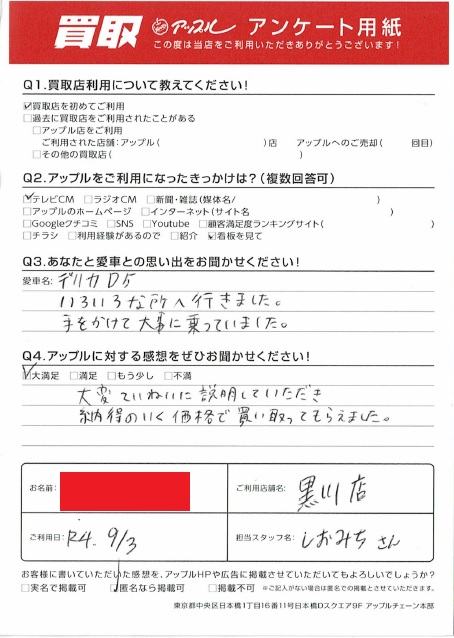 買取 アップル アンケート用紙
この度は当店をご利用いただきありがとうございます!
Q1.買取店利用について教えてください!
☑買取店を初めてご利用
□過去に買取店をご利用されたことがある
□アップル店をご利用
ご利用された店舗:アップル( )店 アップルへのご売却( 回目)
□その他の買取店( )
Q2.アップルをご利用になったきっかけは?(複数回答可)
☑テレビCM □ラジオCM □新聞・雑誌(媒体名/ )
□アップルのホームページ □インターネット(サイト名 )
□Googleクチコミ □SNS □Youtube □顧客満足度ランキングサイト( )
□チラシ □利用経験があるので □紹介 ☑看板を見て
Q3.あなたと愛車との思い出をお聞かせください!
愛車名: デリカD5
いろいろな所へ行きました。
手をかけて大事に乗っていました。
Q4.アップルに対する感想をぜひお聞かせください!
☑大満足 □満足 □もう少し □不満
大変ていねいに説明していただき
納得のいく価格で買い取ってもらえました。
お名前: ご利用店舗名: 黒川店
ご利用日: R4. 9/3 担当スタッフ名: しおみちさん
お客様に書いていただいた感想を、アップルHPや広告に掲載させていただいてもよろしいでしょうか?
□実名で掲載可 ☑匿名なら掲載可 □掲載不可 ※ご記入がない場合は匿名での掲載とさせていただきます。
東京都中央区日本橋1丁目16番11号日本橋Dスクエア9F アップルチェーン本部